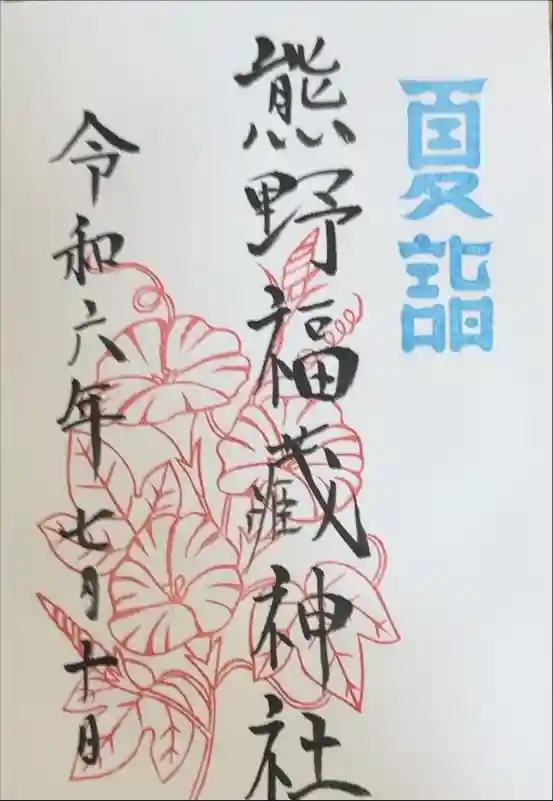 夏詣
熊野福蔵神社
令和六年七月十日